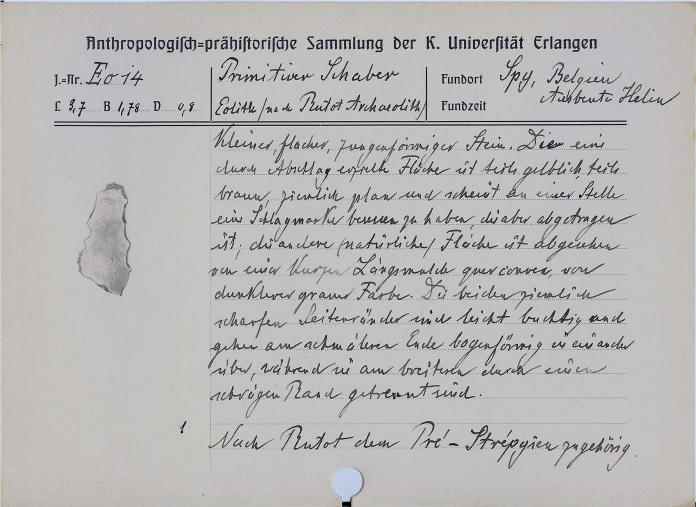 Anthropologisch=prähistorische Sammlung der K. Universität Erlangen
J.=Nr. Eo 14
Primitiver Schaber
Fundort Spy, Belgien
L 3,7 B 1,78 D 0,8
Eolith (nach Rutot Archaeolith)
Ausbeute Helin
Fundzeit
Kleiner, flacher, zungenförmiger Stein. Die eine
durch Abschlag erzielte Fläche ist teils gelblich, teils
braun, ziemlich plan und scheint an einer Stelle
eine Schlagmarke besessen zu haben, die aber abgetragen
ist; die andere (natürliche) Fläche ist abgesehen
von einer kurzen Längsmulde querconvex, von
dunklerer grauer Farbe. Die beiden ziemlich
scharfen Seitenränder sind leicht buchtig und
gehen am schmäleren Ende bogenförmig in einander
über, während sie am breiteren durch einen
schrägen Rand getrennt sind.
1
Nach Rutot dem Pré-Strépyien zugehörig.